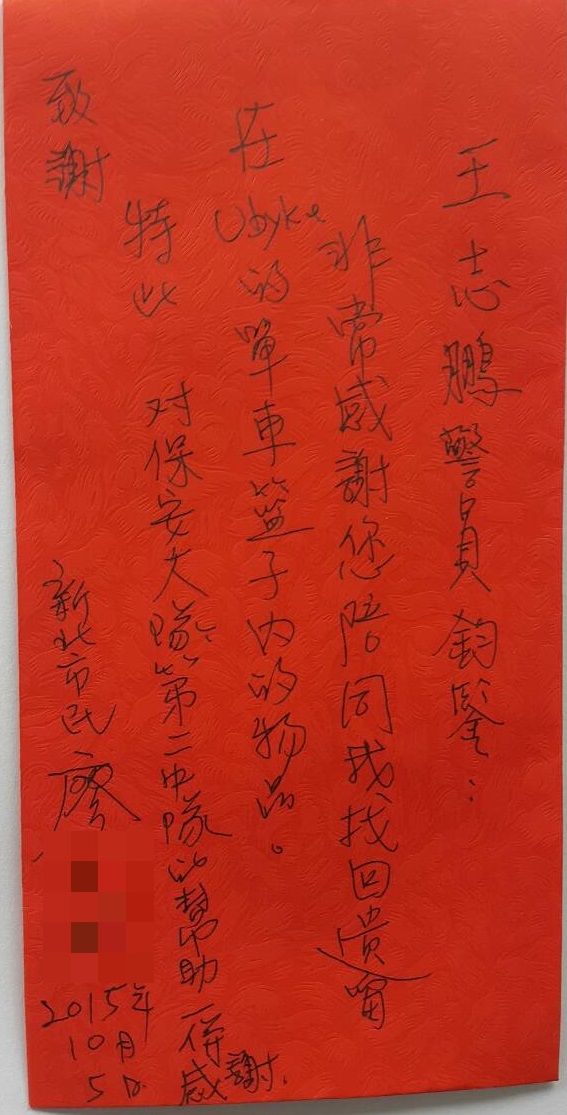 王志鵬警員鈞鑒：
非常感謝您陪同我找回遺留
在Ubyke的單車籃子内的物品。
特此
致謝
对保安大隊第二中隊的幫助一併感謝.
新北市民廖
2015年
10月
5日